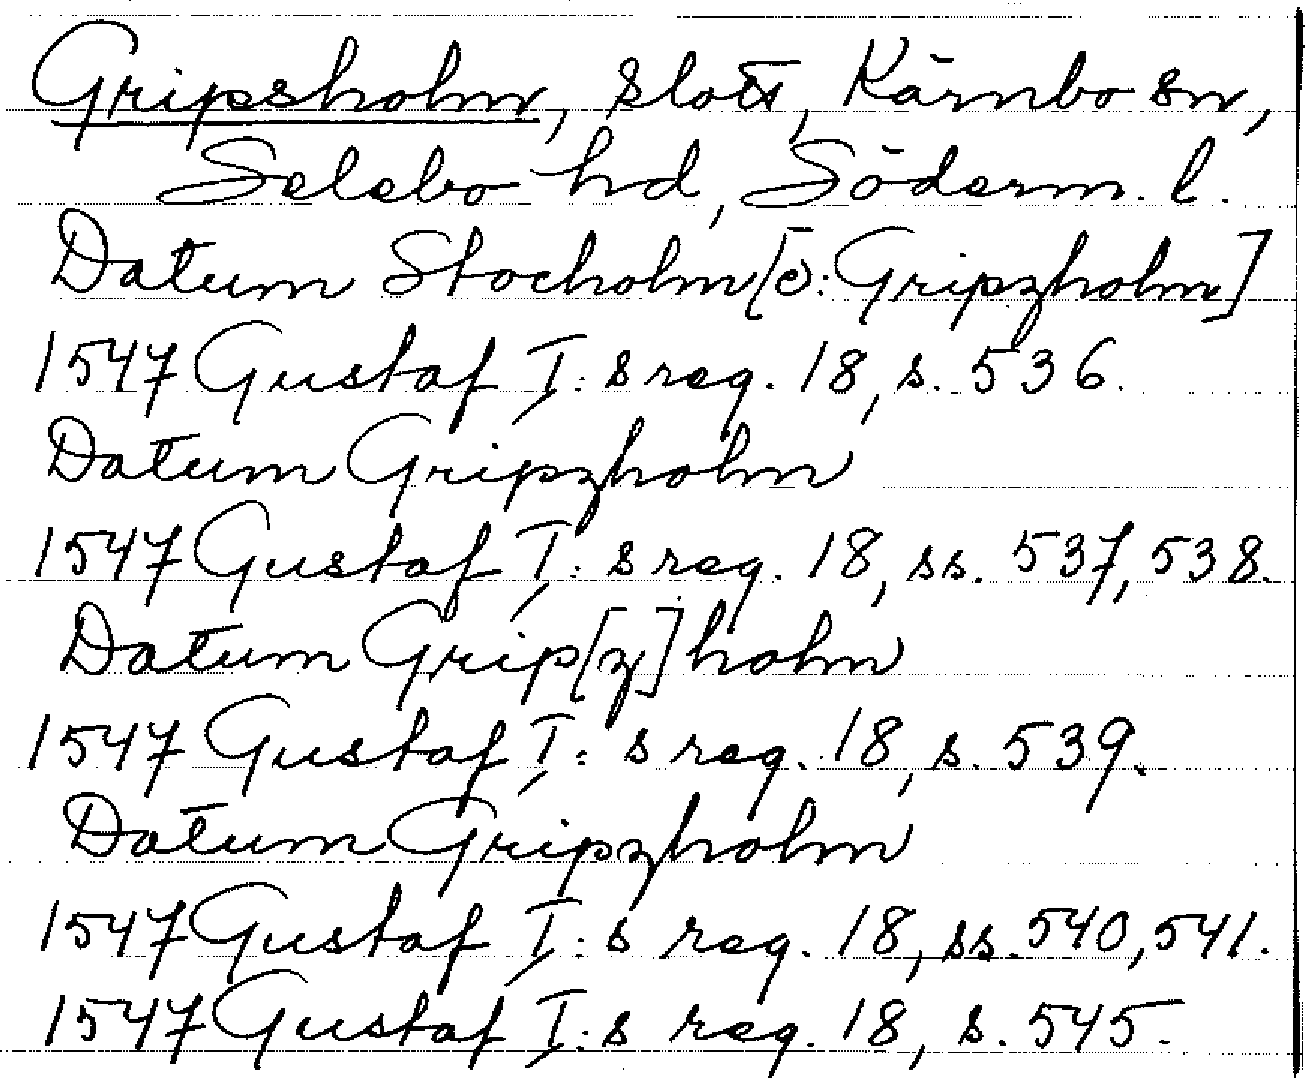 Gripsholm, slott, Kärnbo sn,
Selebo hd, Söderm. l.
Datum Stocholm [ɔ: Gripzholm]
1547 Gustaf I:s reg. 18, s. 536.
Datum Gripzholm
1547 Gustaf I:s reg. 18, ss. 537, 538.
Datum Grip[z]holm
1547 Gustaf I:s reg. 18, s. 539.
Datum Gripzholm
1547 Gustaf I:s reg. 18, ss. 540, 541.
1547 Gustaf I:s reg. 18, s. 545.